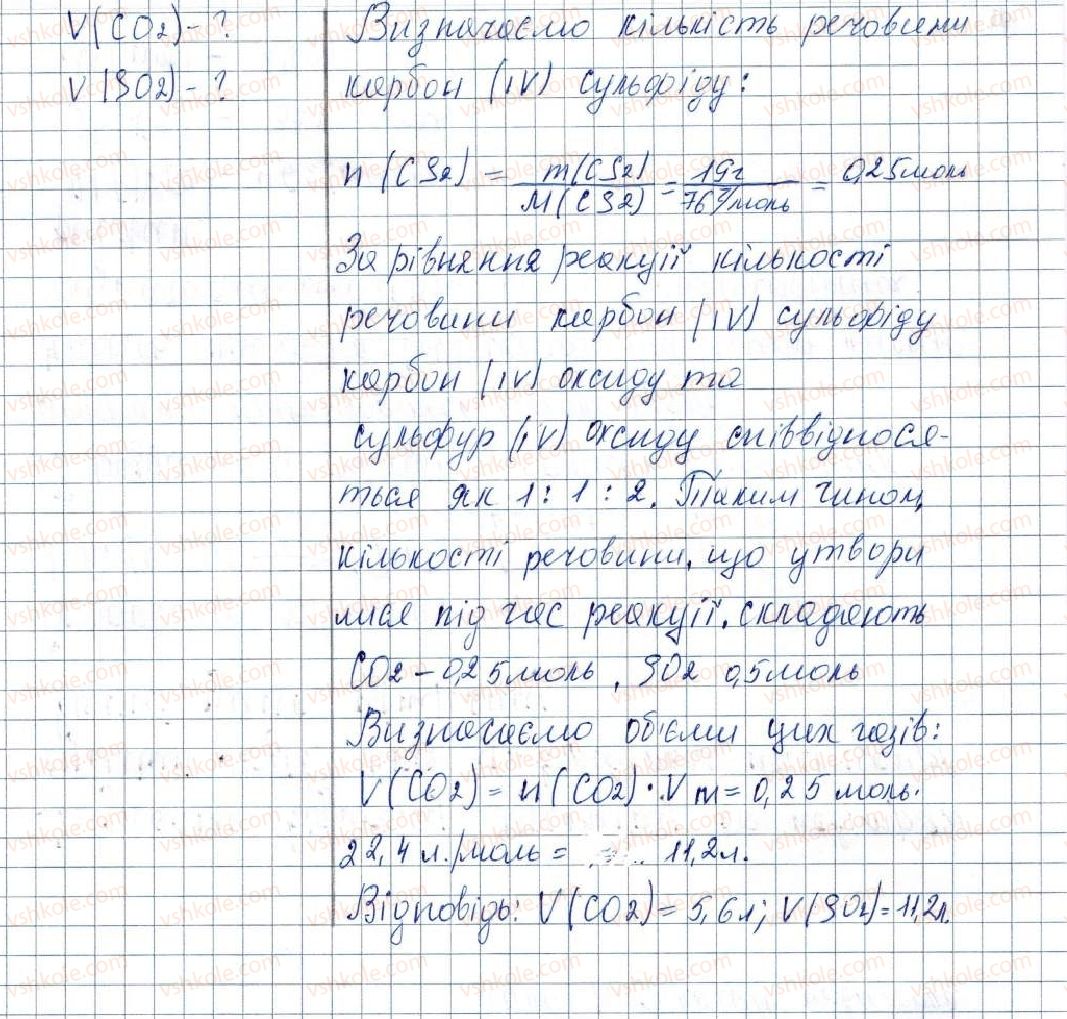 V(CO2) - ?
V(SO2) - ?
Визначаємо кількість речовини
карбон (IV) сульфіду:
n(CS2) = m(CS2)/M(CS2) = 19г/76г/моль = 0,25моль
За рівняння реакції кількості
речовини карбон (IV) сульфіду
карбон (IV) оксиду та
сульфур (IV) оксиду співвіднося-
ться як 1 : 1 : 2. Таким чином,
кількості речовини, що утвори
лися під час реакції, складають
CO2 - 0,25моль, SO2 0,5моль
Визначаємо об'єми цих газів:
V(CO2) = n(CO2) · Vm = 0,25 моль·
22,4 л./моль = 11,2л.
Відповідь: V(CO2) = 5,6л; V(SO2) = 11,2л.
vshkole.com